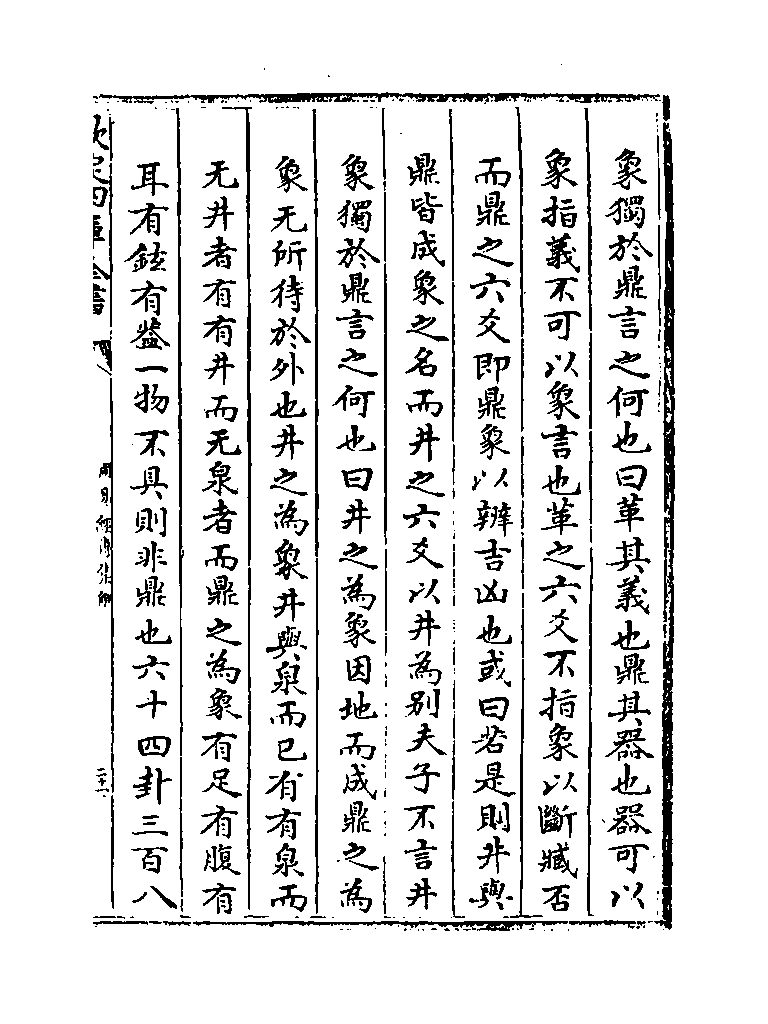 象獨於鼎言之何也曰革其義也鼎其器也器可以
象指義不可以象言也革之六爻不指象以斷臧否
而鼎之六爻即鼎象以辨吉凶也或曰若是則井與
鼎皆成象之名而井之六爻以井為别夫子不言井
象獨於鼎言之何也曰井之為象因地而成鼎之為
象无所待於外也井之為象井與泉而已有有泉而
无井者有有井而无泉者而鼎之為象有足有腹有
耳有鉉有葢一物不具則非鼎也六十四卦三百八
欽定四庫全書
周易經傳集解